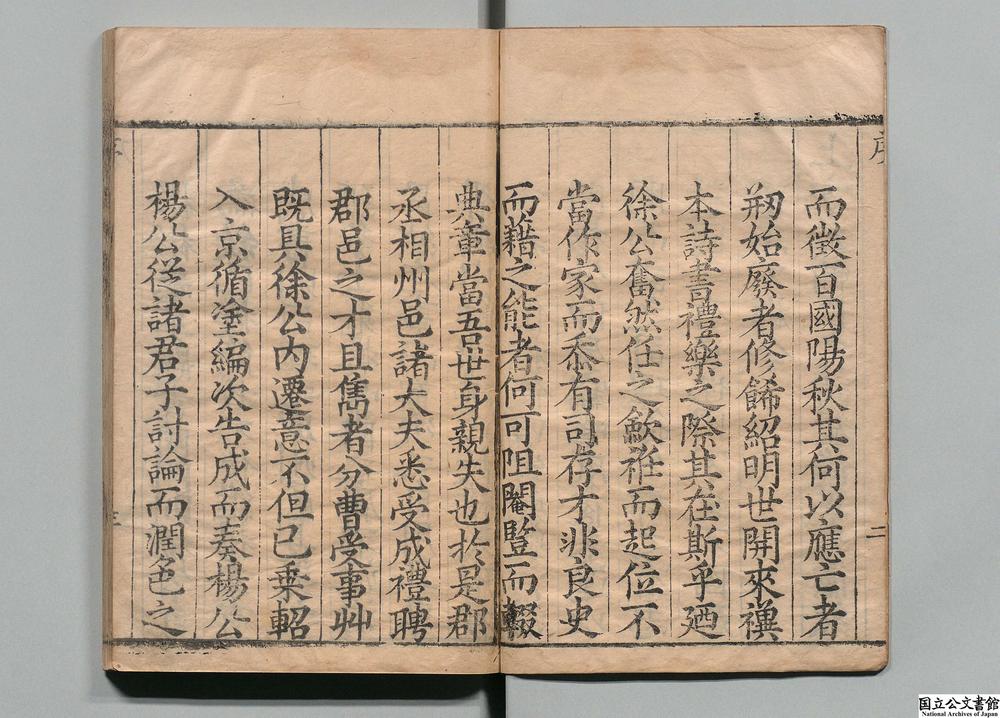 序
二
而徵百國陽秋其何以應亡者
剏始廢者修餙紹明世開來禩
本詩書禮樂之際其在斯乎廼
徐公奮然任之歛袵而起位不
當作家而忝有司存才非良史
而藉之能者何可阻閹豎而輟
典章當吾世身親失也於是郡
丞相州邑諸大夫悉受成禮聘
郡邑之才且雋者分曹受事艸
既具徐公內遷意不但已乗軺
入京循塗編次告成而奏楊公
楊公從諸君子討論而潤色之
国立公文書館
National Archives of Japan